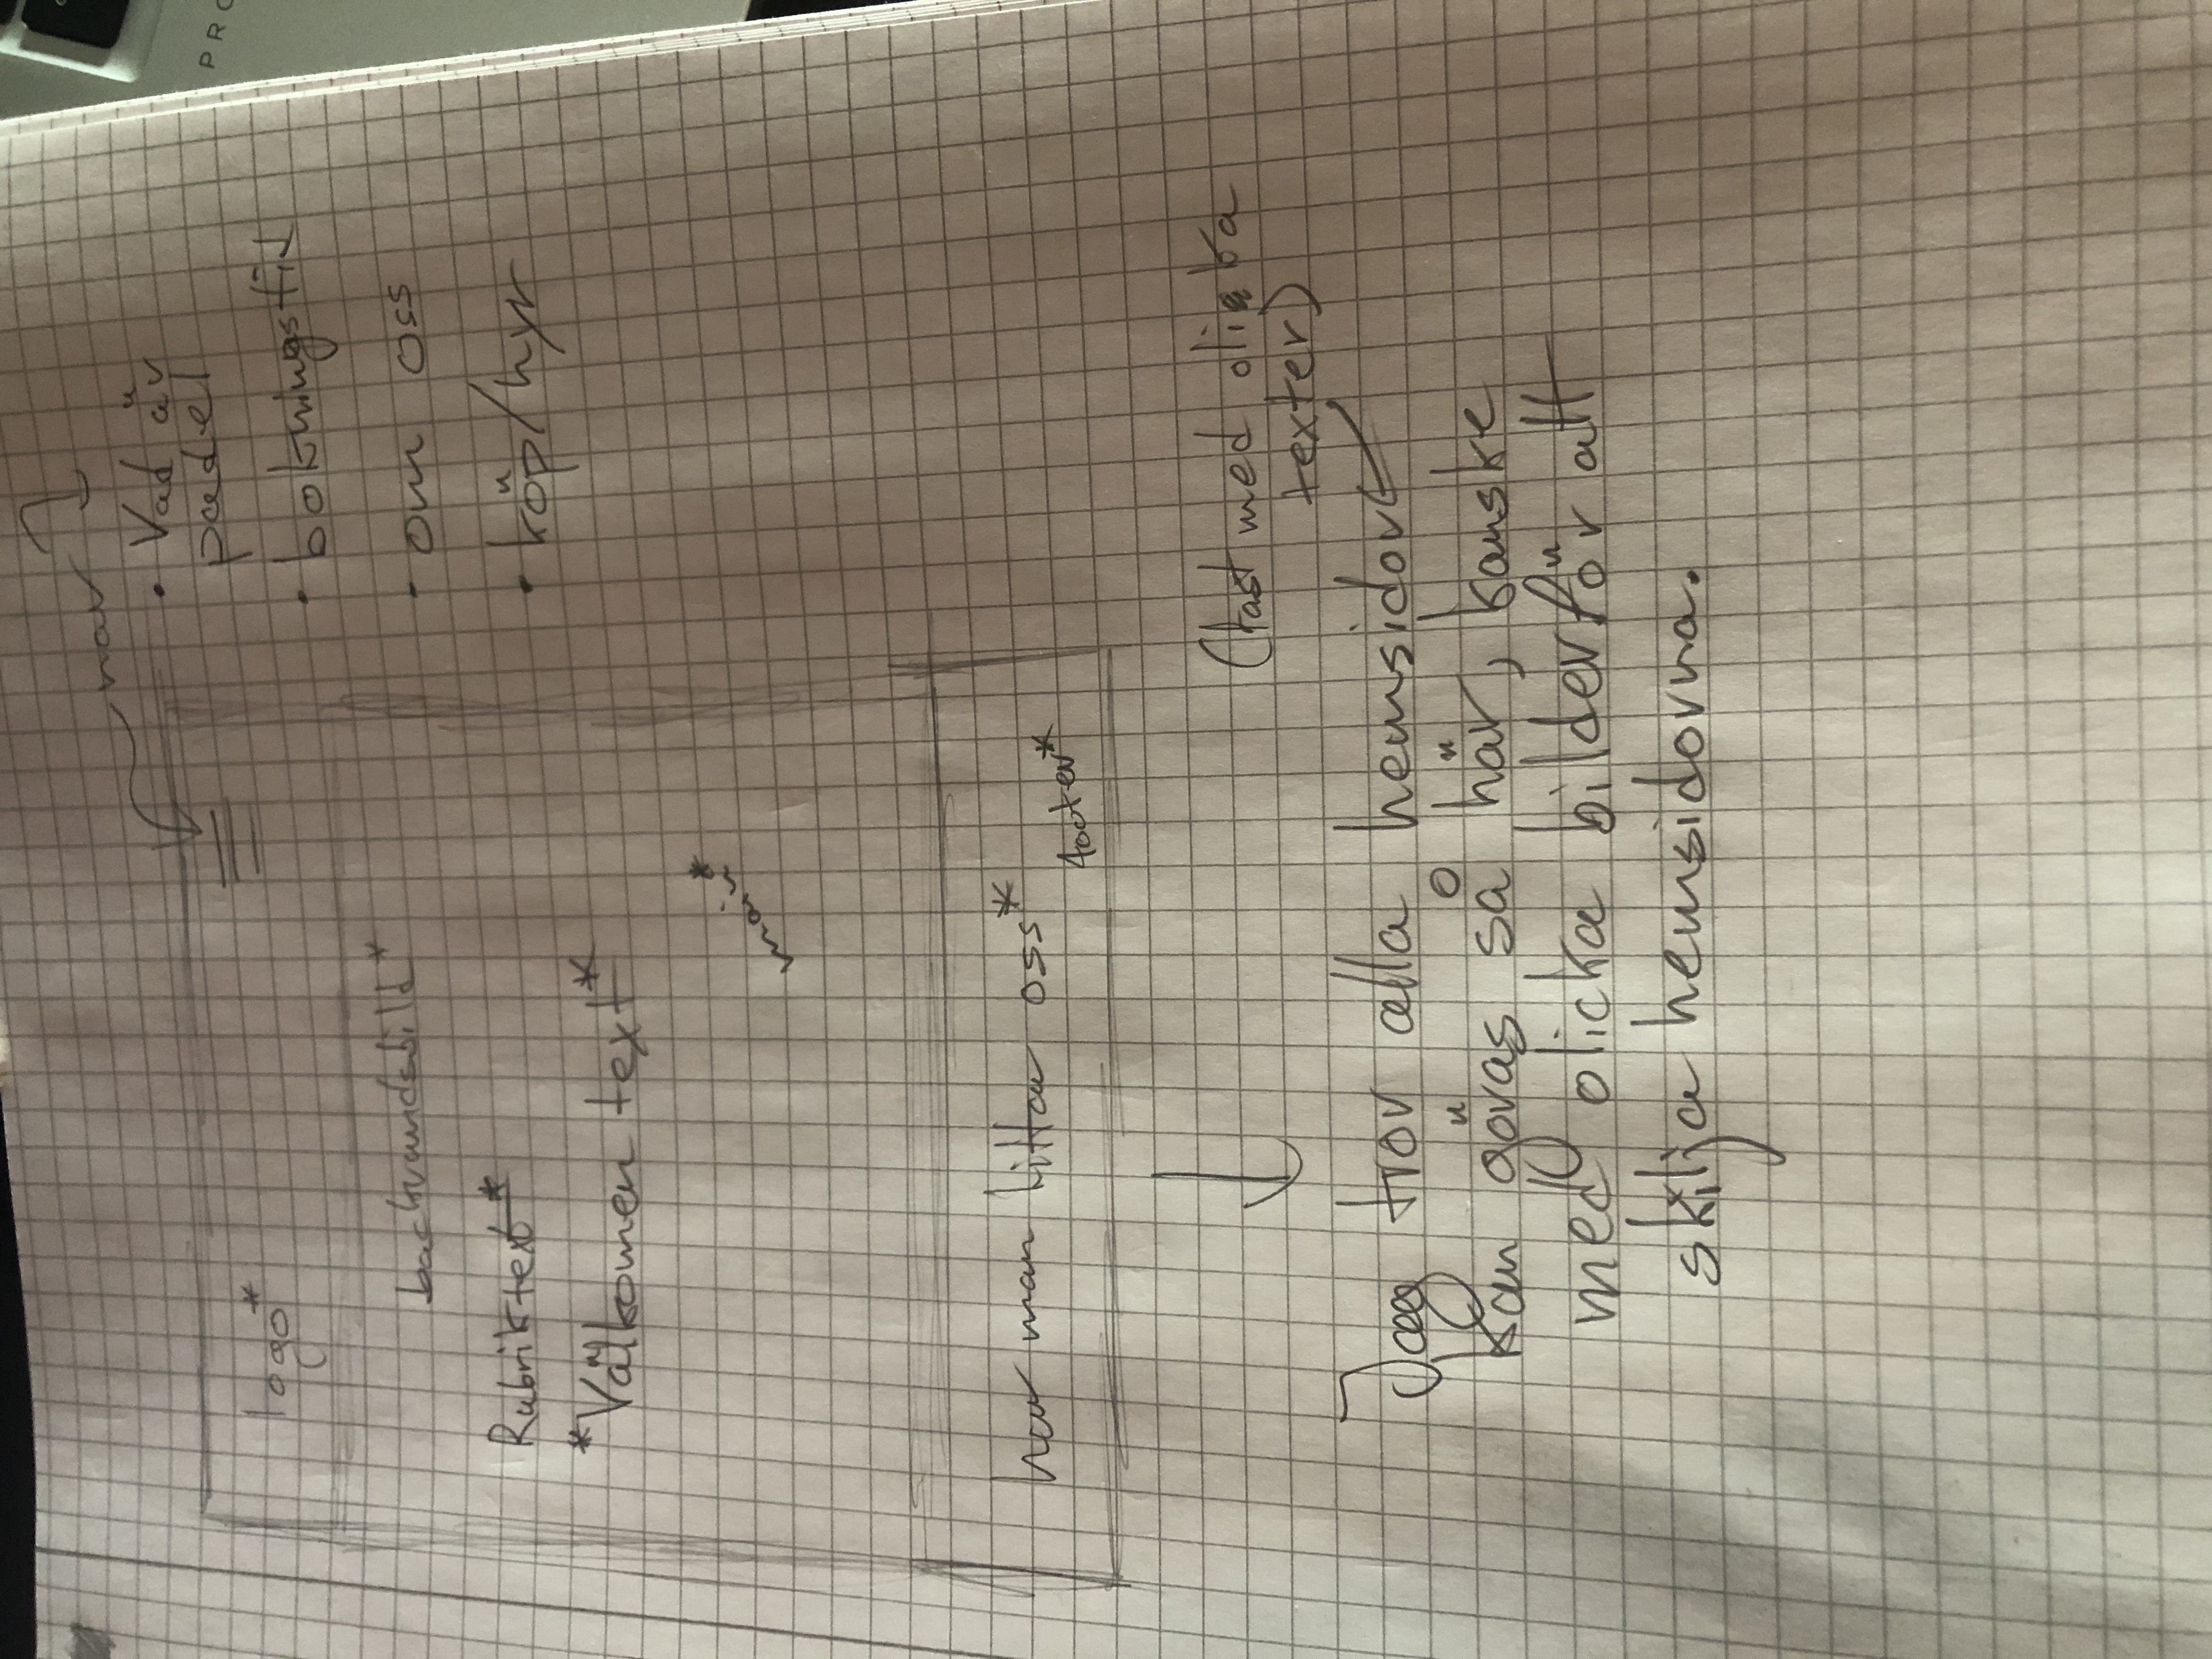 nav
• Vad är
padel
• bokningstid
• om oss
• köp/hyr
logo*
backrundsbild*
Rubriktext*
*Välkomen text*
main*
hur man hittar oss*
footer*
(fast med olika
texter)
Jag tror alla hemsidor
kan göras så här, kanske
med olicka bilder för att
skilja hemsidorna.
PRO